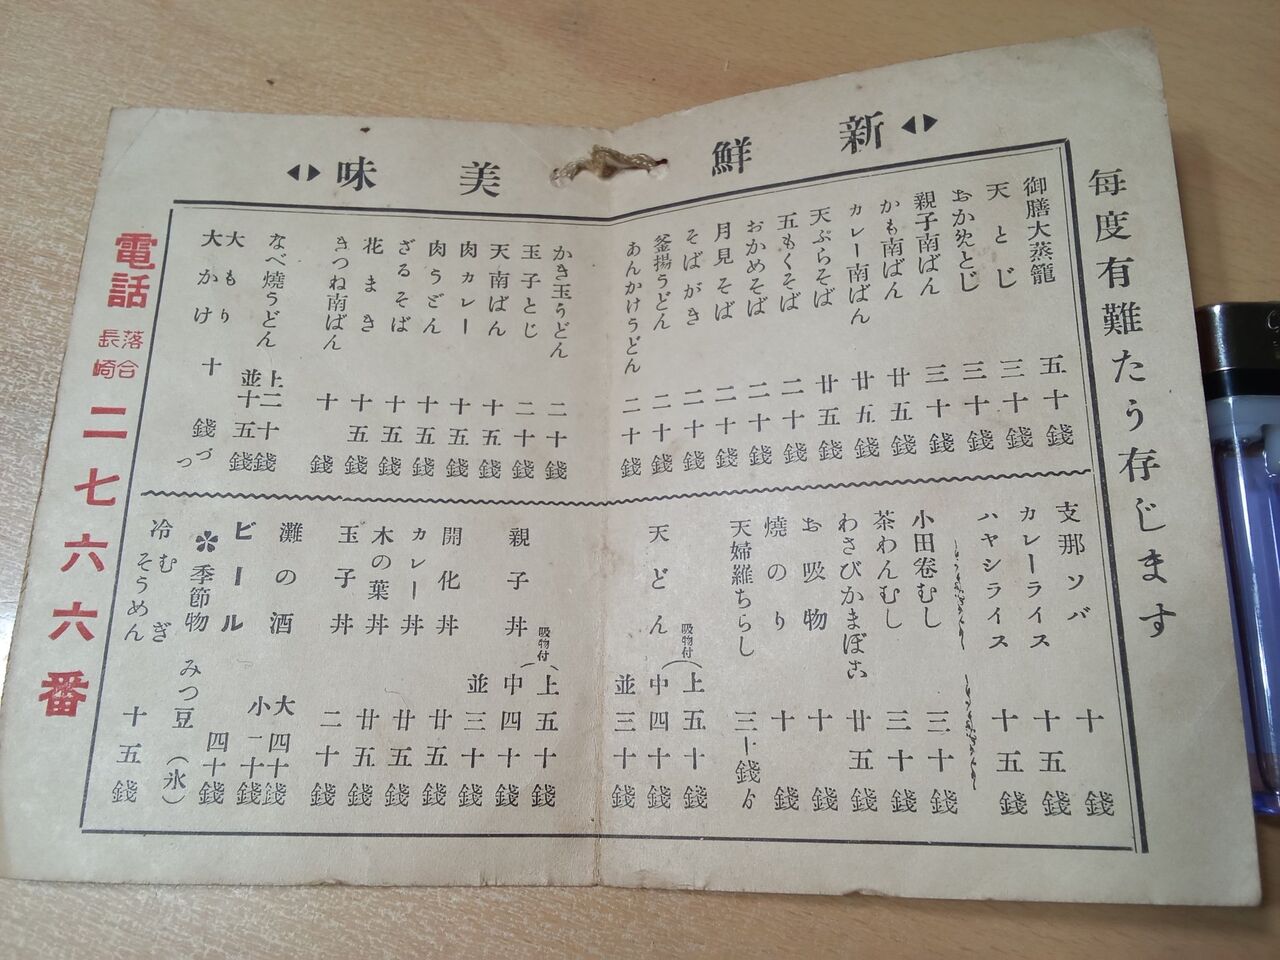 新鮮美味
毎度有難たう存じます
御膳大蒸籠 五十銭
天とじ 三十銭
おかめとじ 三十銭
親子南ばん 三十銭
かも南ばん 廿五銭
カレー南ばん 廿五銭
天ぷらそば 廿五銭
五もくそば 二十銭
おかめそば 二十銭
月見そば 二十銭
そばがき 二十銭
釜揚うどん 二十銭
あんかけうどん 二十銭
かき玉うどん 二十銭
玉子とじ 二十銭
天南ばん 十五銭
肉カレー 十五銭
肉うどん 十五銭
ざるそば 十五銭
花まき 十五銭
きつね南ばん 十銭
なべ焼うどん 上二十銭 並十五銭
大もり
大かけ 十銭づつ
支那ソバ 十銭
カレーライス 十五銭
ハヤシライス 十五銭
小田巻むし 三十銭
茶わんむし 三十銭
わさびかまぼこ 廿五銭
お吸物 十銭
焼のり 十銭
天婦羅ちらし 三十銭より
天どん 吸物付 (上五十銭 中四十銭 並三十銭
親子丼 吸物付 (上五十銭 中四十銭 並三十銭
開化丼 廿五銭
カレー丼 廿五銭
木の葉丼 廿五銭
玉子丼 二十銭
灘の酒 大四十銭 小二十銭
ビール 四十銭
季節物 みつ豆 (氷)
冷むぎ
そうめん 十五銭
電話 落合長崎 二七六六番